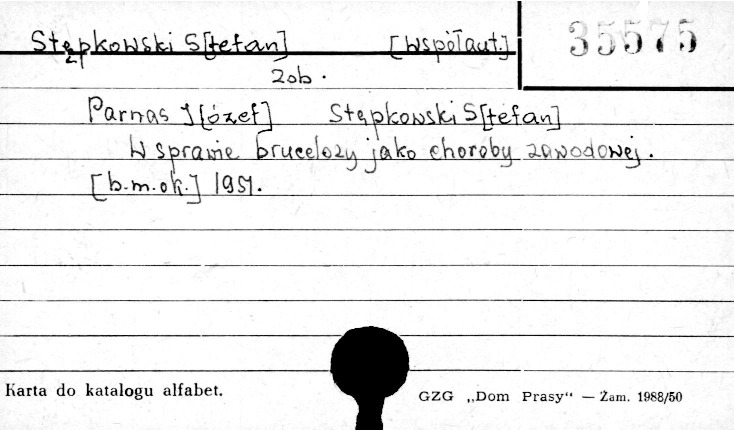 Stępkowski S[tefan] [współaut.] 35575
zob.
Parnas J[ózef] Stępkowski S[tefan]
W sprawie brucelozy jako choroby zawodowej.
[b.m.ok.] 1951.
Karta do katalogu alfabet.
GZG „Dom Prasy“ — Żam. 1988/50